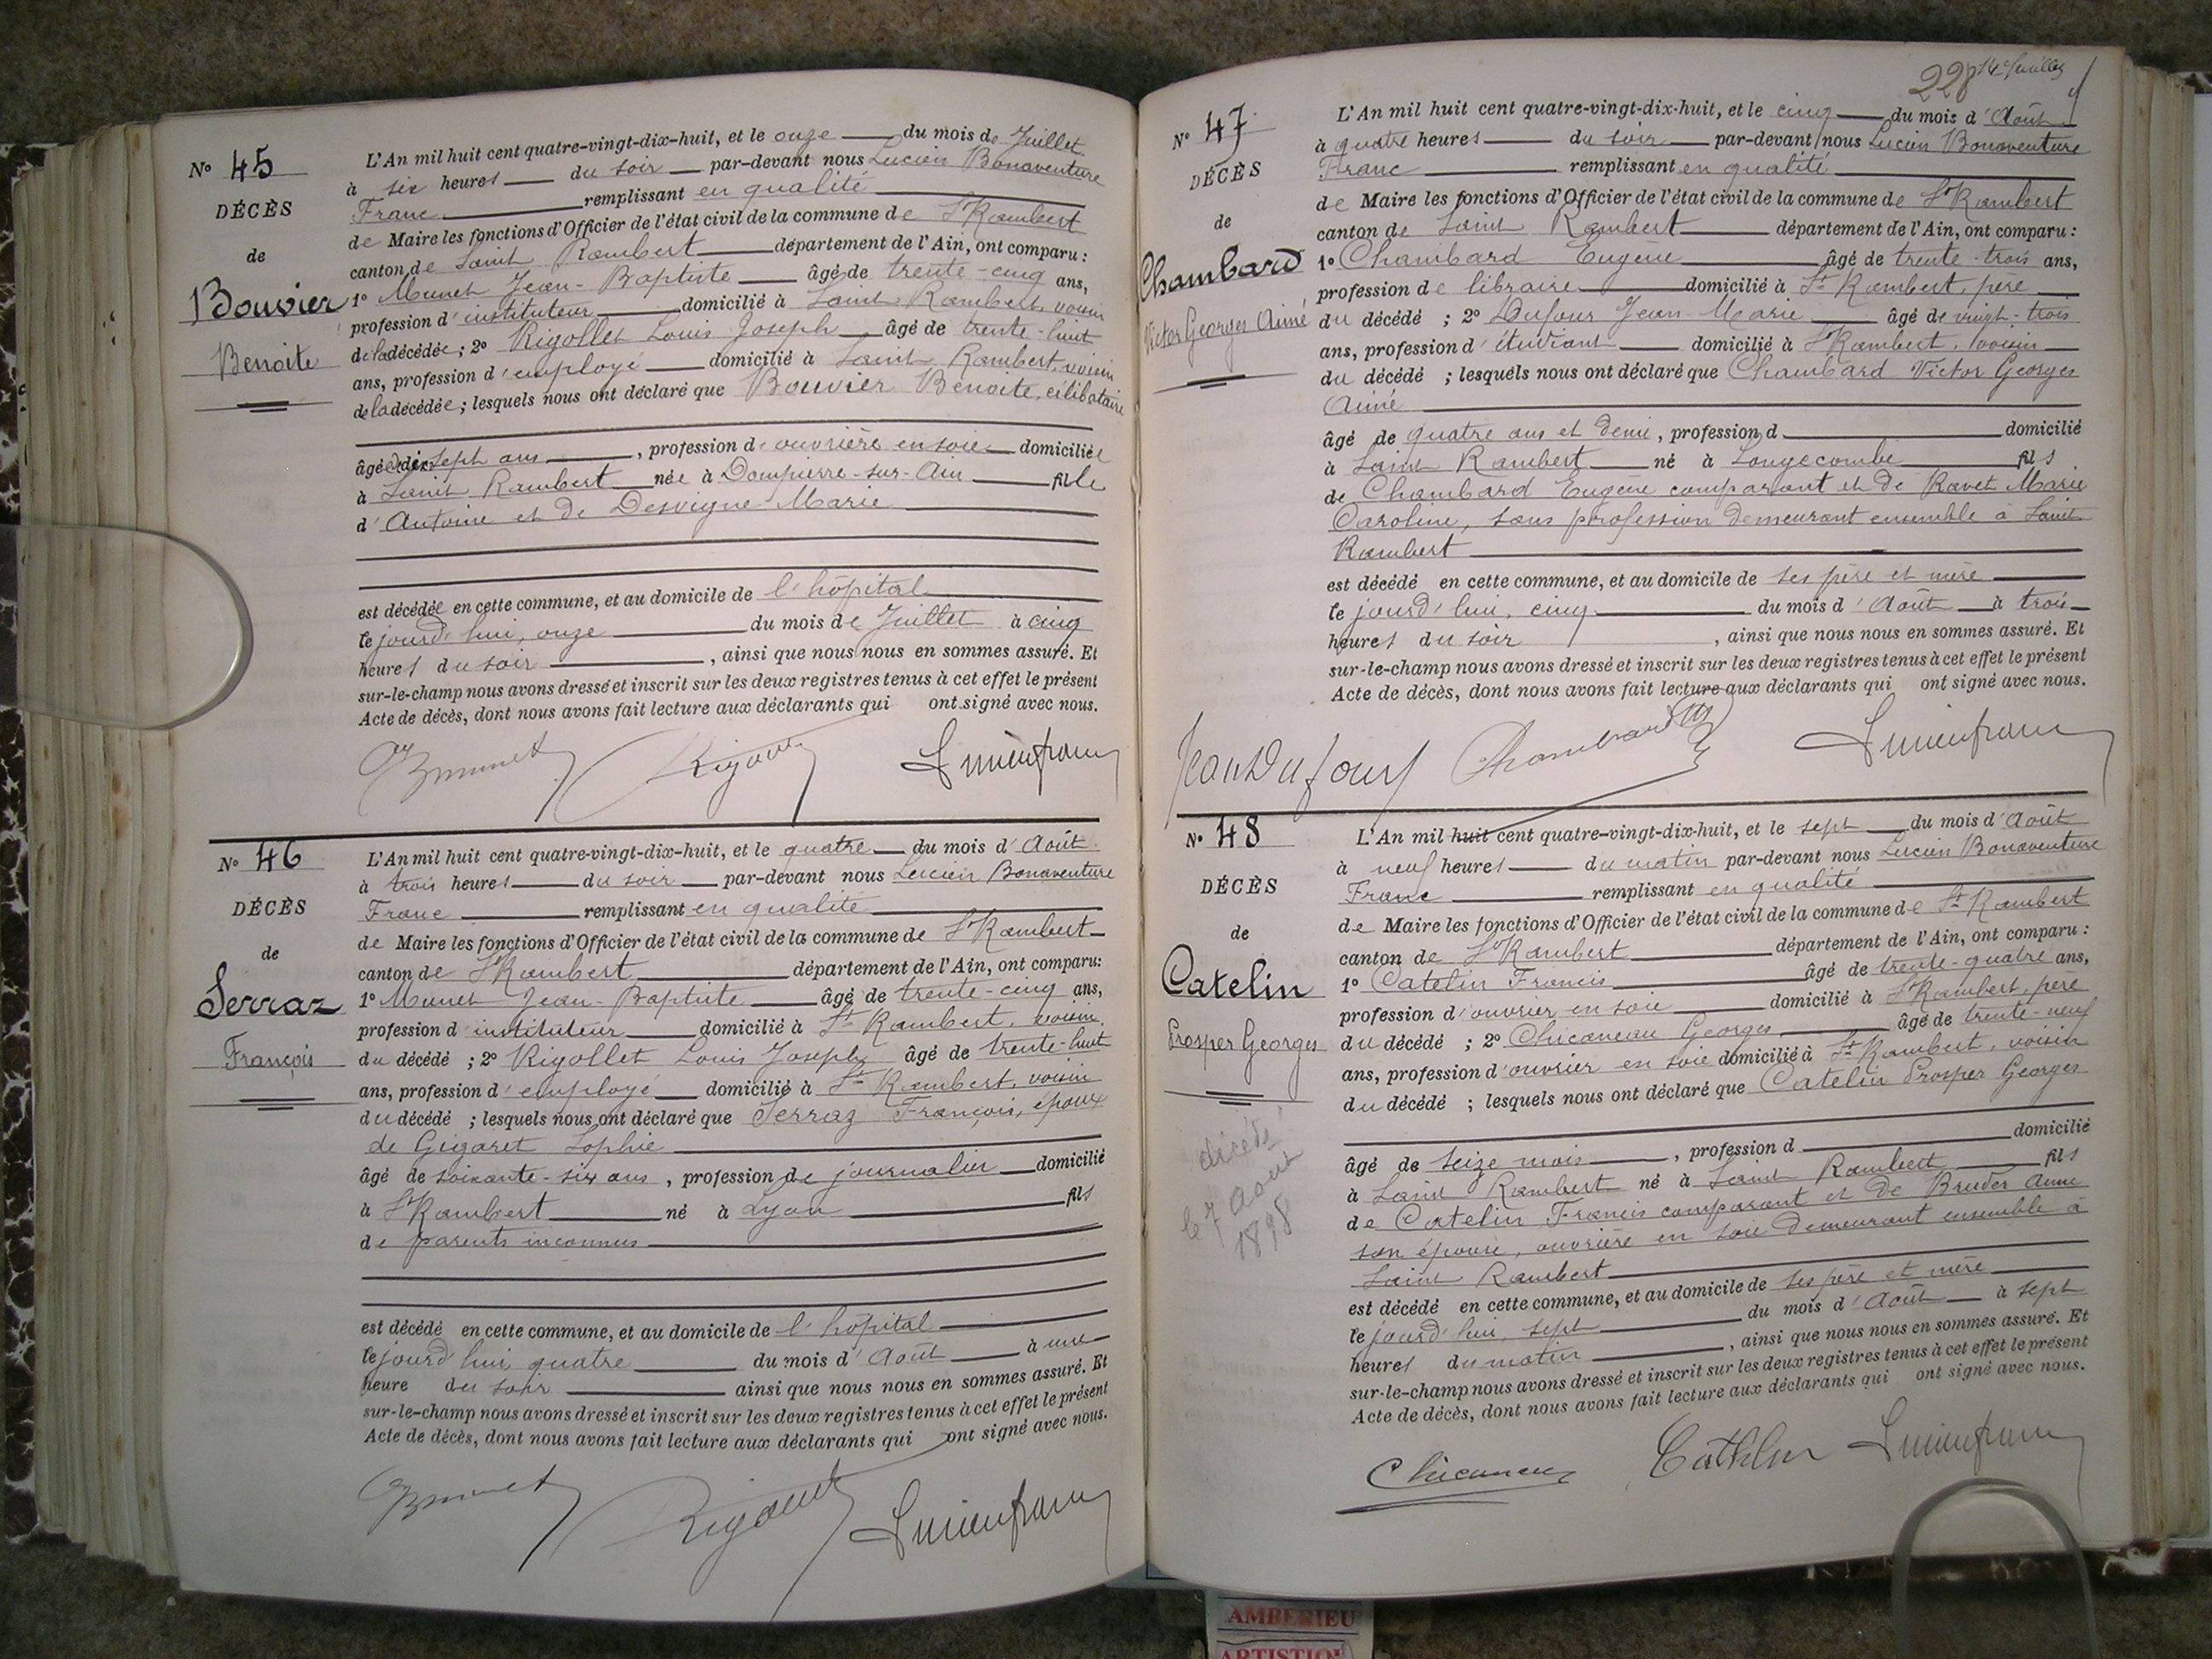 N° 45
DÉCÈS
de
Bouvier
Benoite
L'An mil huit cent quatre-vingt-dix-huit, et le onze du mois de Juillet
à six heures du soir par-devant nous Lucien Bonaventure
Franc remplissant en qualité
de Maire les fonctions d'Officier de l'état civil de la commune de St Rambert
canton de Saint Rambert département de l'Ain, ont comparu :
1° Munet Jean-Baptiste âgé de trente-cinq ans,
profession d'instituteur domicilié à Saint Rambert, voisin
de la décédée ; 2° Rigollet Louis Joseph âgé de trente-huit
ans, profession d'employé domicilié à Saint Rambert, voisin
de la décédée ; lesquels nous ont déclaré que Bouvier Benoite, célibataire
âgée de dix sept ans, profession d'ouvrière en soie domiciliée
à Saint Rambert née à Dompierre-sur-Ain fille
d'Antoine et de Desvigne Marie
est décédée en cette commune, et au domicile de l'hôpital
le jourd'hui, onze du mois de Juillet à cinq
heures du soir, ainsi que nous nous en sommes assuré. Et
sur-le-champ nous avons dressé et inscrit sur les deux registres tenus à cet effet le présent
Acte de décès, dont nous avons fait lecture aux déclarants qui ont signé avec nous.
Lucien franc
N° 46
DÉCÈS
de
Serraz
François
L'An mil huit cent quatre-vingt-dix-huit, et le quatre du mois d'Août
à trois heures du soir par-devant nous Lucien Bonaventure
Franc remplissant en qualité
de Maire les fonctions d'Officier de l'état civil de la commune de St Rambert
canton de St Rambert département de l'Ain, ont comparu:
1° Munet Jean-Baptiste âgé de trente-cinq ans,
profession d'instituteur domicilié à St Rambert, voisin
du décédé ; 2° Rigollet Louis Joseph âgé de trente-huit
ans, profession d'employé domicilié à St Rambert, voisin
du décédé ; lesquels nous ont déclaré que Serraz François, époux
de Gigaret Sophie
âgé de soixante-six ans, profession de journalier domicilié
à St Rambert né à Lyon fils
de parents inconnus
est décédé en cette commune, et au domicile de l'hôpital
le jourd'hui quatre du mois d'Août à une
heure du soir ainsi que nous nous en sommes assuré. Et
sur-le-champ nous avons dressé et inscrit sur les deux registres tenus à cet effet le présent
Acte de décès, dont nous avons fait lecture aux déclarants qui ont signé avec nous.
Lucien franc
228
N° 47
DÉCÈS
de
Chambard
Victor Georges Aimé
L'An mil huit cent quatre-vingt-dix-huit, et le cinq du mois d'Août
à quatre heures du soir par-devant nous Lucien Bonaventure
Franc remplissant en qualité
de Maire les fonctions d'Officier de l'état civil de la commune de St Rambert
canton de Saint Rambert département de l'Ain, ont comparu :
1° Chambard Eugène âgé de trente-trois ans,
profession de libraire domicilié à St Rambert, père
du décédé ; 2° Dufour Jean-Marie âgé de vingt-trois
ans, profession d'étudiant domicilié à St Rambert, voisin
du décédé ; lesquels nous ont déclaré que Chambard Victor Georges
Aimé
âgé de quatre ans et demi, profession d domicilié
à Saint Rambert né à Longecombe fils
de Chambard Eugène comparant et de Ravet Marie
Caroline, sans profession demeurant ensemble à Saint
Rambert
est décédé en cette commune, et au domicile de ses père et mère
le jourd'hui, cinq du mois d'Août à trois
heures du soir, ainsi que nous nous en sommes assuré. Et
sur-le-champ nous avons dressé et inscrit sur les deux registres tenus à cet effet le présent
Acte de décès, dont nous avons fait lecture aux déclarants qui ont signé avec nous.
Jean Dufour Chambard Lucien franc
N° 48
DÉCÈS
de
Catelin
Prosper Georges
décédé
le 7 Aout
1898
L'An mil huit cent quatre-vingt-dix-huit, et le sept du mois d'Août
à neuf heures du matin par-devant nous Lucien Bonaventure
Franc remplissant en qualité
de Maire les fonctions d'Officier de l'état civil de la commune de St Rambert
canton de St Rambert département de l'Ain, ont comparu :
1° Catelin Francis âgé de trente-quatre ans,
profession d'ouvrier en soie domicilié à St Rambert, père
du décédé ; 2° Chicaneau Georges âgé de trente-neuf
ans, profession d'ouvrier en soie domicilié à St Rambert, voisin
du décédé ; lesquels nous ont déclaré que Catelin Prosper Georges
âgé de seize mois, profession d domicilié
à Saint Rambert né à Saint Rambert fils
de Catelin Francis comparant et de Bruder Anne
son épouse, ouvrière en soie demeurant ensemble à
Saint Rambert
est décédé en cette commune, et au domicile de ses père et mère
le jourd'hui, sept du mois d'Août à sept
heures du matin, ainsi que nous nous en sommes assuré. Et
sur-le-champ nous avons dressé et inscrit sur les deux registres tenus à cet effet le présent
Acte de décès, dont nous avons fait lecture aux déclarants qui ont signé avec nous.
Chicaneau Lucien franc
AMBERIEU